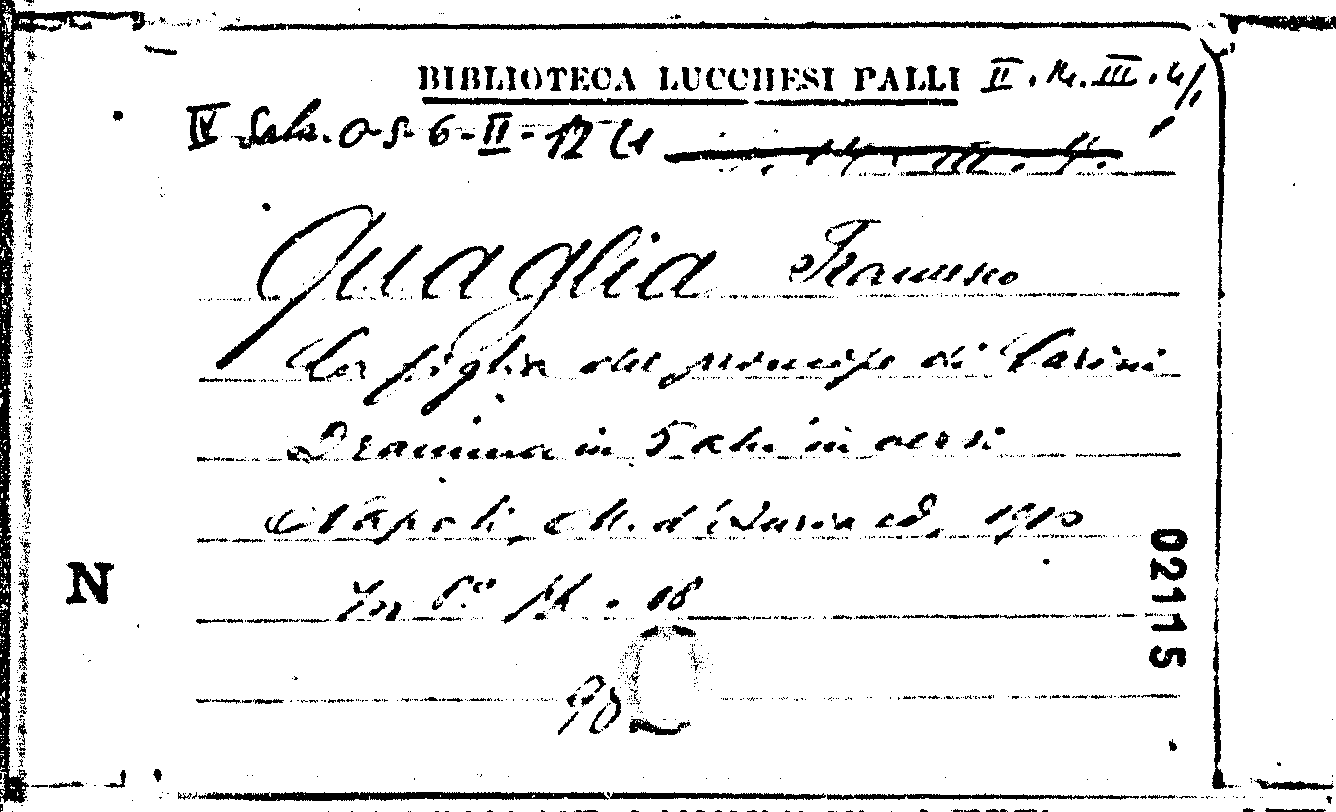 BIBLIOTECA LUCCHESI PALLI II. 14. III. 4/1
IV Sala. O-5-6-II-12 (1
Quaglia Francesco
La figlia del principe di Carini
Dramma in 5 atti in versi
Napoli, M. d'Auria ed, 1910
In 8º
N
02115